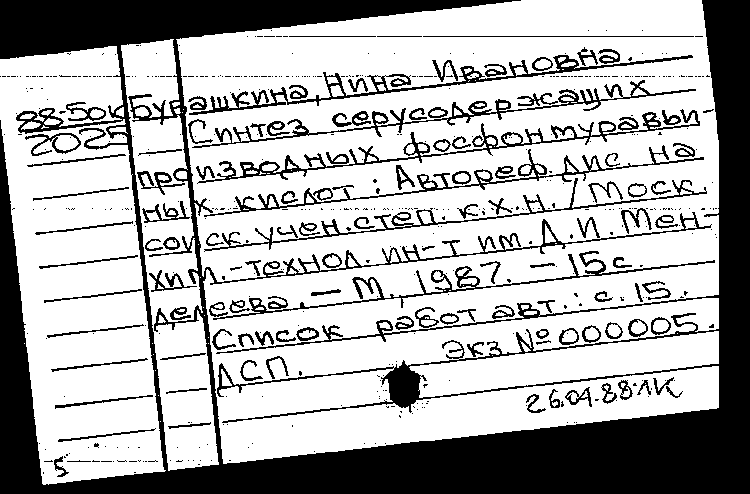 88-50К Бурашкина, Нина Ивановна.
2025 Синтез серусодержащих
производных фосфонмуравьи-
ных кислот : Автореф. дис. на
соиск. учен. степ. к.х.н. / Моск.
хим.-технол. ин-т им. Д.И. Мен-
делеева. — М., 1987. — 15 с.
Список работ авт.: с. 15.
ДСП. Экз. № 000005.
26.04.88. 1К
5